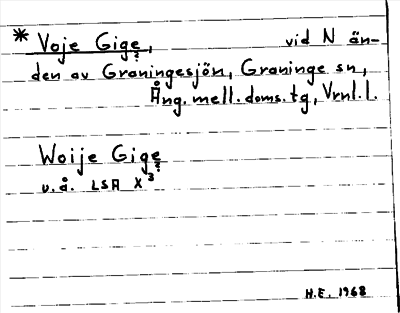 * Voje Gige, vid N än-
den av Graningesjön, Graninge sn,
Ång. mell. doms. tg, Vrnl. l.
Woije Gige
u.å. LSA X 3
H.E. 1968